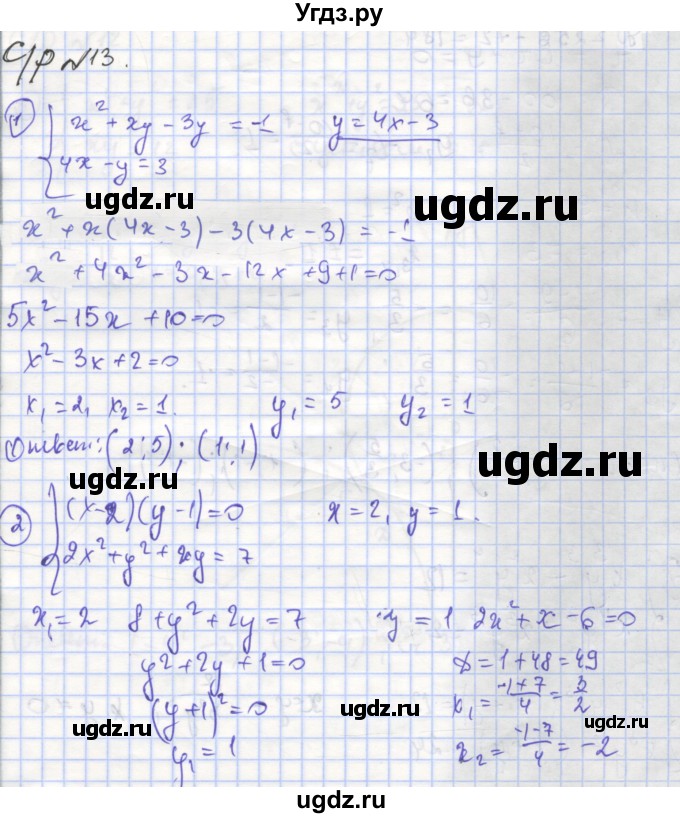 Угдз.ру
С/р №13.
① { x² + xy − 3y = −1    y = 4x − 3
4x − y = 3
ugdz.ru ugdz.ru
x² + x(4x − 3) − 3(4x − 3) = −1
x² + 4x² − 3x − 12x + 9 + 1 = 0
5x² − 15x + 10 = 0
ugdz.ru
x² − 3x + 2 = 0
x₁ = 2, x₂ = 1.    y₁ = 5    y₂ = 1
Ответ: (2; 5); (1; 1)
ugdz.ru ugdz.ru
② { (x − 2)(y − 1) = 0    x = 2, y = 1.
2x² + y² + xy = 7
x₁ = 2    8 + y² + 2y = 7    y = 1    2x² + x − 6 = 0
y² + 2y + 1 = 0    D = 1 + 48 = 49
(y + 1)² = 0    x₁ = (−1+7)/4 = 3/2
ugdz.ru ugdz.ru
y₁ = 1    x₂ = (−1−7)/4 = −2
ugdz.ru